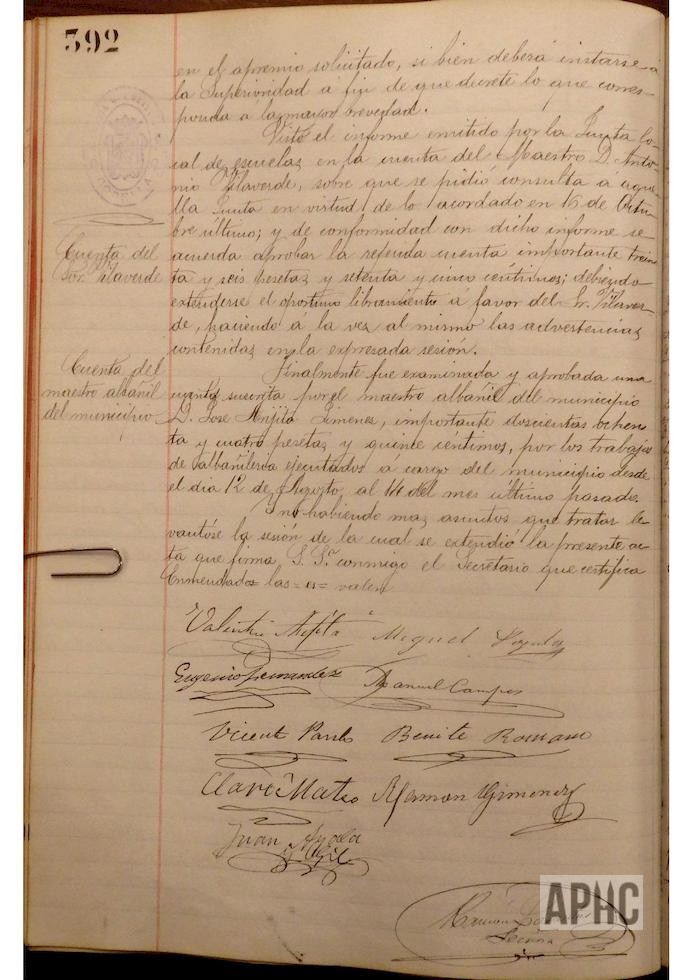 392
en el apremio solicitado, si bien deberá instarse á
la Superioridad á fin de que decrete lo que corres-
ponda á la mayor brevedad.
Visto el informe emitido por la Junta lo-
cal de escuelas en la cuenta del Maestro D. Anto-
nio Vilaverde, sobre que se pidió consulta a aque-
lla Junta en virtud de lo acordado en 16 de Octu-
bre último; y de conformidad con dicho informe se
acuerda aprobar la referida cuenta importante trein-
ta y seis pesetas y setenta y cinco céntimos; debiendo
extenderse el oportuno libramiento a favor del Sr. Vilaver-
de, haciendo á la vez al mismo las advertencias
contenidas en la expresada sesión.
Cuenta del
Sor. Vilaverde
Finalmente fue examinada y aprobada una
cuenta suscrita por el maestro albañil del municipio
D. Jose Jimenez, importante doscientas ochen-
ta y cuatro pesetas y quince centimos, por los trabajos
de albañileria ejecutados á cargo del municipio desde
el dia 12 de Agosto al 14 del mes último pasado.
Cuenta del
maestro albañil
del municipio
Y no habiendo mas asuntos que tratar le-
vantóse la sesión de la cual se extendió la presente ac-
ta que firma S. Sª conmigo el Secretario que certifica
Enmendados las = valen
Valentin Miguel
Eugenio Fernandez Manuel Campos
Vicent Pardo Benito Romano
Claro Mateo Roman Gimenez
Juan Ayala
y Gil
Ramon
APHC